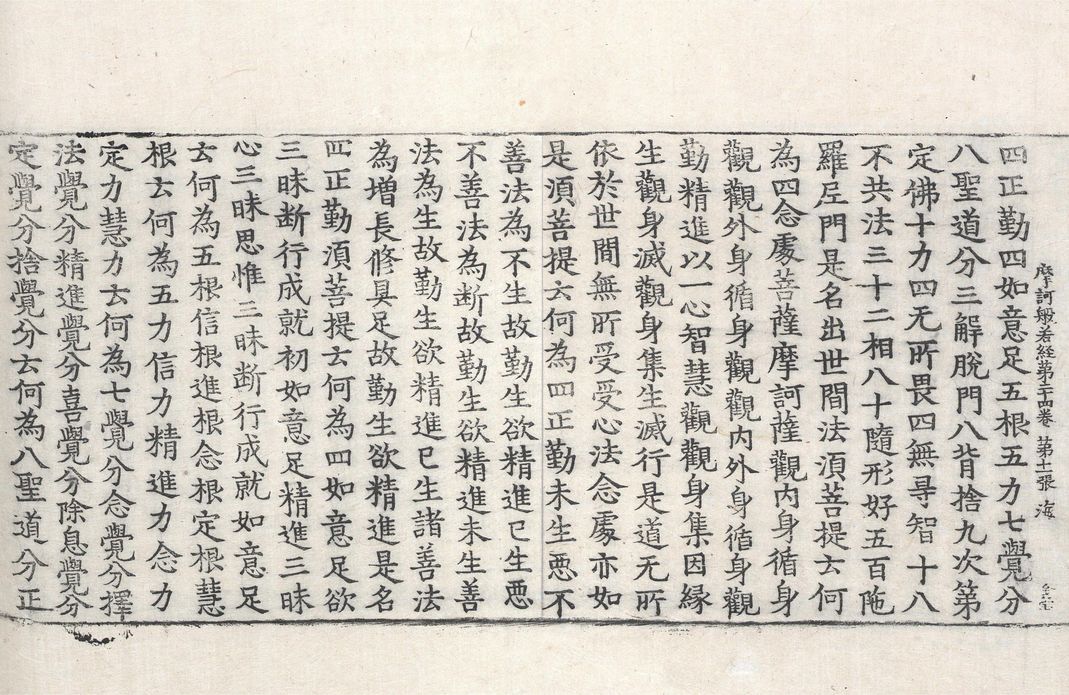 摩訶般若經第二十四卷 第十一張 海
四正勤四如意足五根五力七覺分
八聖道分三解脫門八背捨九次第
定佛十力四无所畏四無㝵智十八
不共法三十二相八十隨形好五百陁
羅尼門是名出世間法須菩提云何
為四念處菩薩摩訶薩觀內身循身
觀觀外身循身觀觀內外身循身觀
勤精進以一心智慧觀觀身集因緣
生觀身滅觀身集生滅行是道无所
依於世間無所受受心法念處亦如
是須菩提云何為四正勤未生惡不
善法為不生故勤生欲精進已生惡
不善法為断故勤生欲精進未生善
法為生故勤生欲精進已生諸善法
為增長修具足故勤生欲精進是名
四正勤須菩提云何為四如意足欲
三昧断行成就初如意足精進三昧
心三昧思惟三昧断行成就如意足
云何為五根信根進根念根定根慧
根云何為五力信力精進力念力
定力慧力云何為七覺分念覺分擇
法覺分精進覺分喜覺分除息覺分
定覺分捨覺分云何為八聖道分正